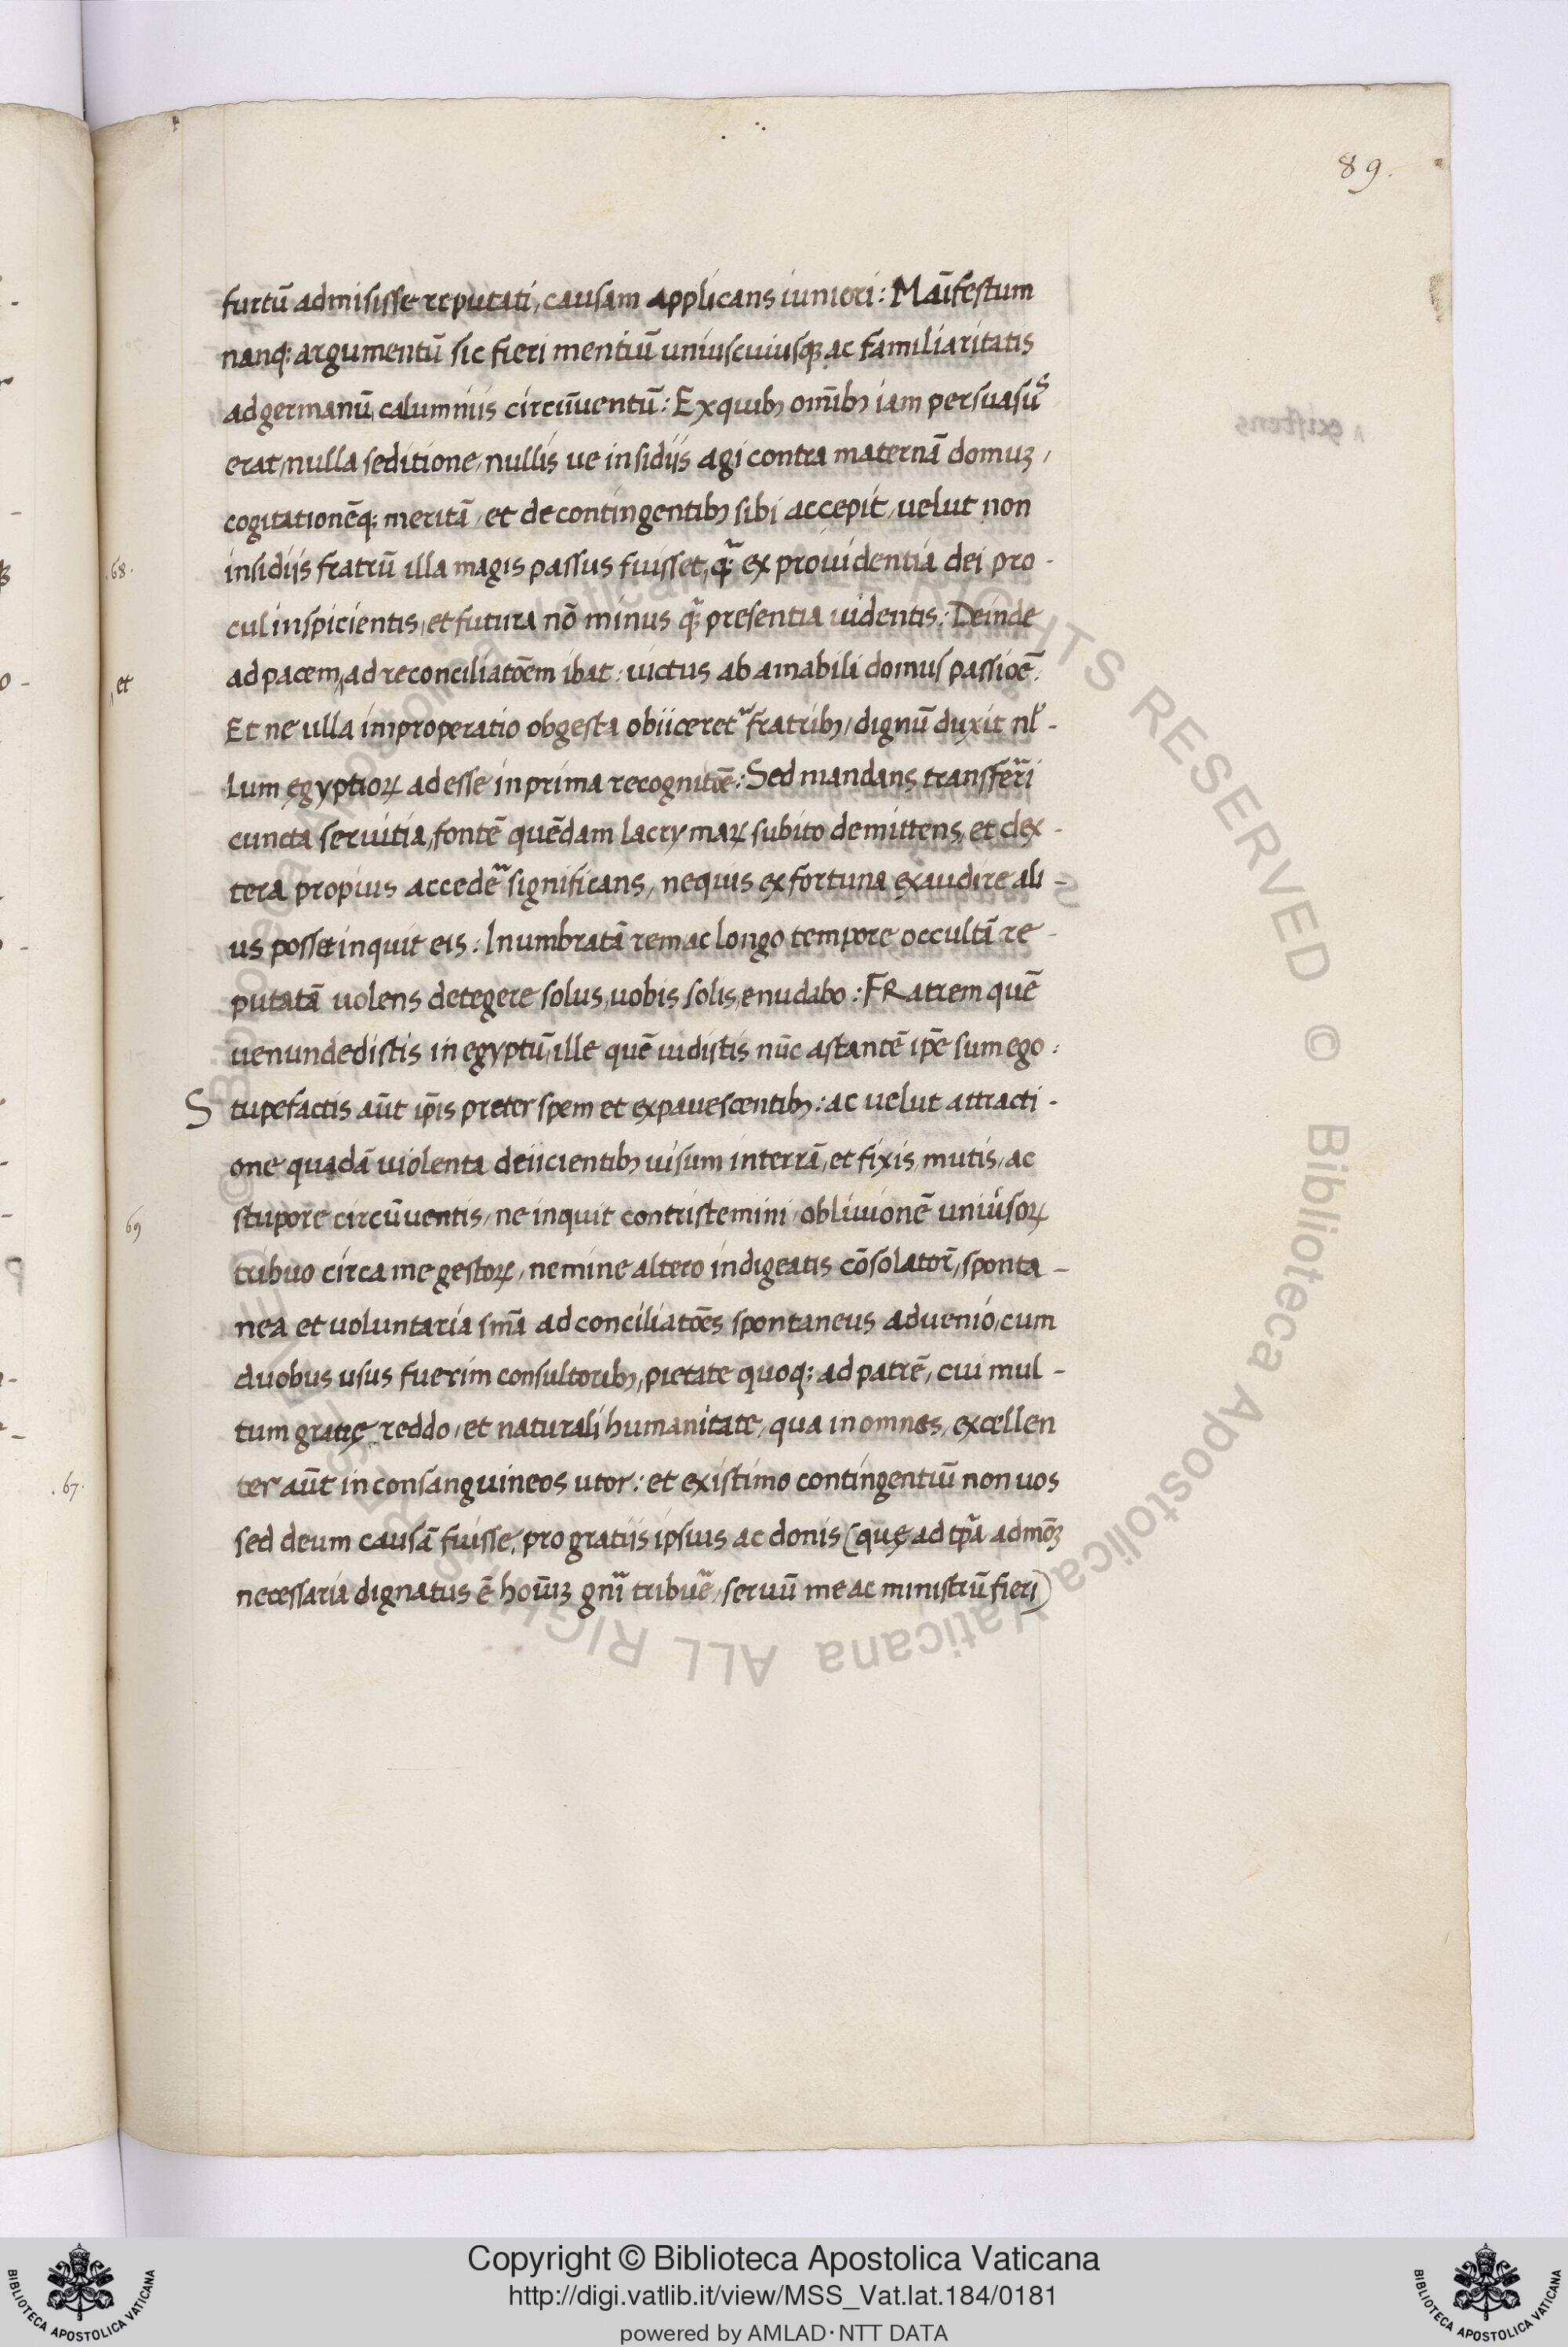 89.
furtū admisisse reputati, causam applicans iuniori: Maīfestum
nanq; argumentū sic fieri mentiū uniuscuiusqȝ ac familiaritatis
ad germanū, calumniis circūuentū: Ex quibȝ om̄ibȝ iam persuasūs
erat, nulla seditione, nullis ue insidijs agi contra maternā domuȝ,
cogitationēq; meritā, et de contingentibȝ sibi accepit, uelut non
.68.
insidijs fratrū illa magis passus fuisset, q̄ ex prouidentia dei pro-
cul inspicientis, et futura nō minus q̄ presentia uidentis: Deinde
et
ad pacem, ad reconciliatōem ibat: uictus ab amabili domus passiōe:
Et ne ulla improperatio ob gesta obiiceretr fratribȝ, dignū duxit nl̄-
lum ęgyptioꝝ adesse in prima recognitiōe: Sed mandans transferri
cuncta seruitia, fontē quēdam lacrymaꝝ subito demittens, et dex-
tera propius accedē significans, nequis ex fortuna exaudire ali-
us posset inquit eis: Inumbratā rem ac longo tempore occultā re-
putatā uolens detegere solus, uobis solis, enudabo: FRatrem quē
uenundedistis in egyptū, ille quē uidistis nūc astantē ip̄e sum ego:
Stupefactis aūt ip̄is preter spem et expauescentibȝ: ac uelut attracti-
one quadā uiolenta deiicientibȝ uisum in terrā, et fixis, mutis, ac
69
stupore circūuentis, ne inquit contristemini, obliuionē uniūsoꝝ
tribuo circa me gestoꝝ, nemine altero indigeatis cōsolatoī, sponta-
nea et uoluntaria sn̄ia ad conciliatōēs spontaneus aduenio, cum
duobus usus fuerim consultoribȝ, pietate quoq; ad patrē, cui mul-
tum gratię reddo, et naturali humanitate, qua in omnes, excellen
.67.
ter aūt in consanguineos utor: et existimo contingentiū non uos
sed deum causā fuisse, pro gratijs ipsius ac donis (quę ad tp̄a ad mōȝ
necessaria dignatus ē hoīuȝ gn̄i tribuē, seruū me ac ministrū fieri)
© Biblioteca Apostolica Vaticana ALL RIGHTS RESERVED
Copyright © Biblioteca Apostolica Vaticana
http://digi.vatlib.it/view/MSS_Vat.lat.184/0181
powered by AMLAD·NTT DATA
BIBLIOTECA APOSTOLICA VATICANA
BIBLIOTECA APOSTOLICA VATICANA